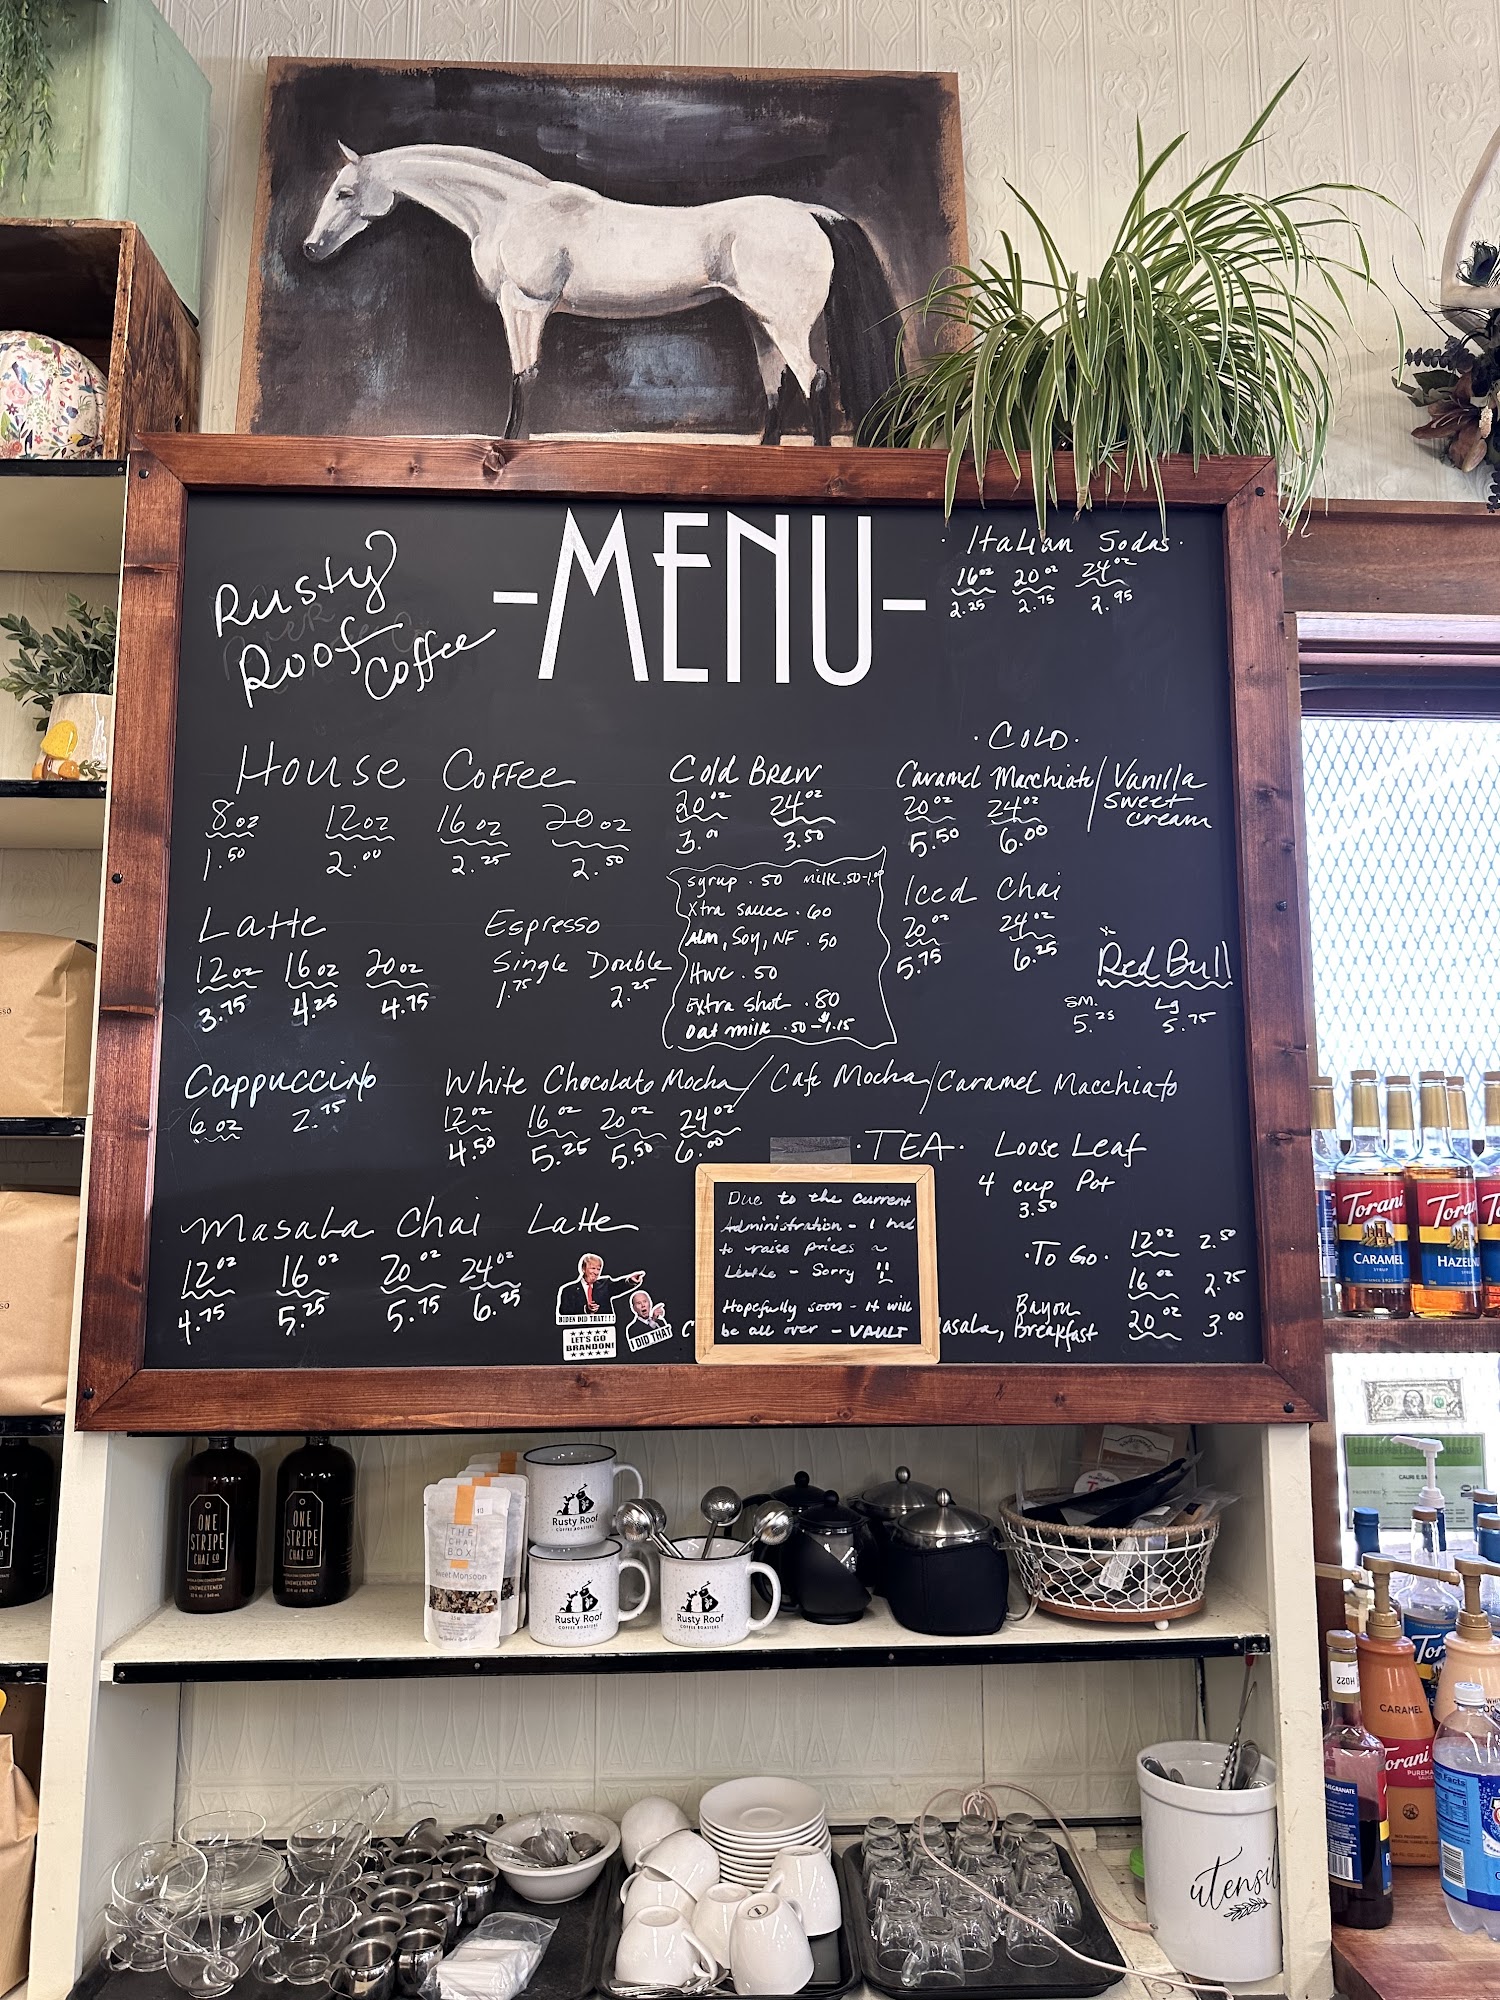 -MENU-
Rusty
Roof
Coffee
· Italian Sodas ·
16oz 20oz 24oz
2.25 2.75 2.95
House Coffee
8oz 12oz 16oz 20oz
1.50 2.00 2.25 2.50
Cold Brew
20oz 24oz
3.00 3.50
· COLD ·
Caramel Macchiato / Vanilla
sweet
cream
20oz 24oz
5.50 6.00
Latte
12oz 16oz 20oz
3.75 4.25 4.75
Espresso
Single Double
1.75 2.25
syrup .50 milk .50-1.00
Xtra sauce .60
Alm, Soy, NF .50
HWC .50
Extra shot .80
Oat milk .50-$1.15
Iced Chai
20oz 24oz
5.75 6.25
Red Bull
SM. Lg
5.25 5.75
Cappuccino
6oz 2.75
White Chocolate Mocha / Cafe Mocha / Caramel Macchiato
12oz 16oz 20oz 24oz
4.50 5.25 5.50 6.00
· TEA · Loose Leaf
4 cup Pot
3.50
· To Go · 12oz 2.50
16oz 2.75
20oz 3.00
Masala Chai Latte
12oz 16oz 20oz 24oz
4.75 5.25 5.75 6.25
BIDEN DID THAT!!!
LET'S GO
BRANDON!
I DID THAT
Due to the current
Administration - I had
to raise prices a
Little - Sorry
Hopefully soon - it will
be all over - VAULT
C
asala, Bayou
Breakfast
ONE
STRIPE
CHAI CO
UNSWEETENED
ONE
STRIPE
CHAI CO
UNSWEETENED
THE
CHAI
BOX
Sweet Monsoon
Rusty Roof
COFFEE ROASTERS
Rusty Roof
COFFEE ROASTERS
Rusty Roof
COFFEE ROASTERS
Torani
CARAMEL
SYRUP
Torani
HAZELN
CARAMEL
Torani
PUREMA
SAUCE
H022
Facts
utensil